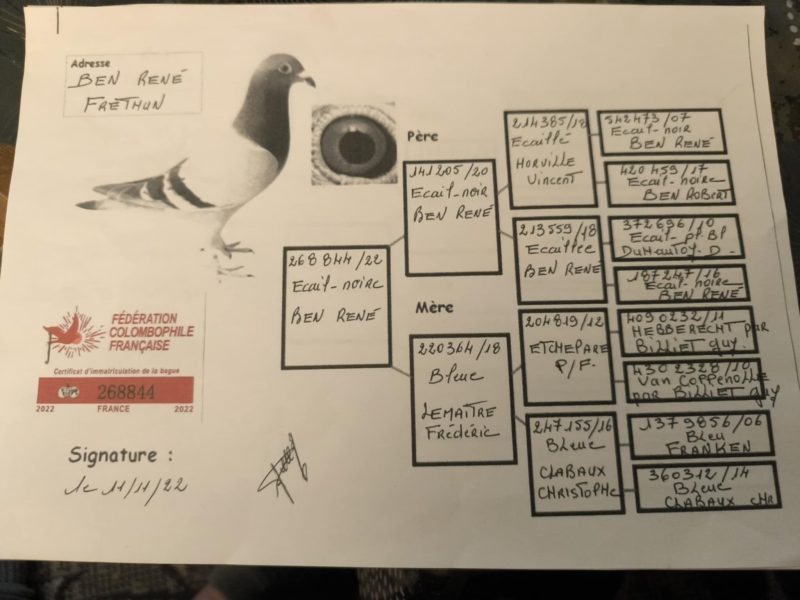 Adresse
BEN RENÉ
FRETHUN
Père
Mère
268844/22
Ecail-noire
BEN RENÉ
141205/20
Ecail-noir
BEN RENÉ
220364/18
Bleue
LEMAITRE
Frédéric
214385/18
Ecaillé
HORVILLE
Vincent
213559/18
Ecaillee
BEN RENÉ
204819/12
ETCHEPARE
P/F.
247155/16
Bleue
CLABAUX
CHRISTOPHE
542473/07
Ecail-noir
BEN RENÉ
420459/17
Ecail-noire
BEN ROBERT
372696/10
Ecail-pt Bl
DuHautoy. D.
187247/16
Ecail-noire
BEN RENÉ
4090232/11
HEBBERECHT par
BILLIET guy.
4302328/10
Van COPPENOLLE
par BILLIET guy
1379856/06
Bleu
FRANKEN
360312/14
Bleue
CLABAUX CHR
FÉDÉRATION
COLOMBOPHILE
FRANÇAISE
Certificat d'immatriculation de la bague
268844
2022 FRANCE 2022
Signature :
le 11/11/22